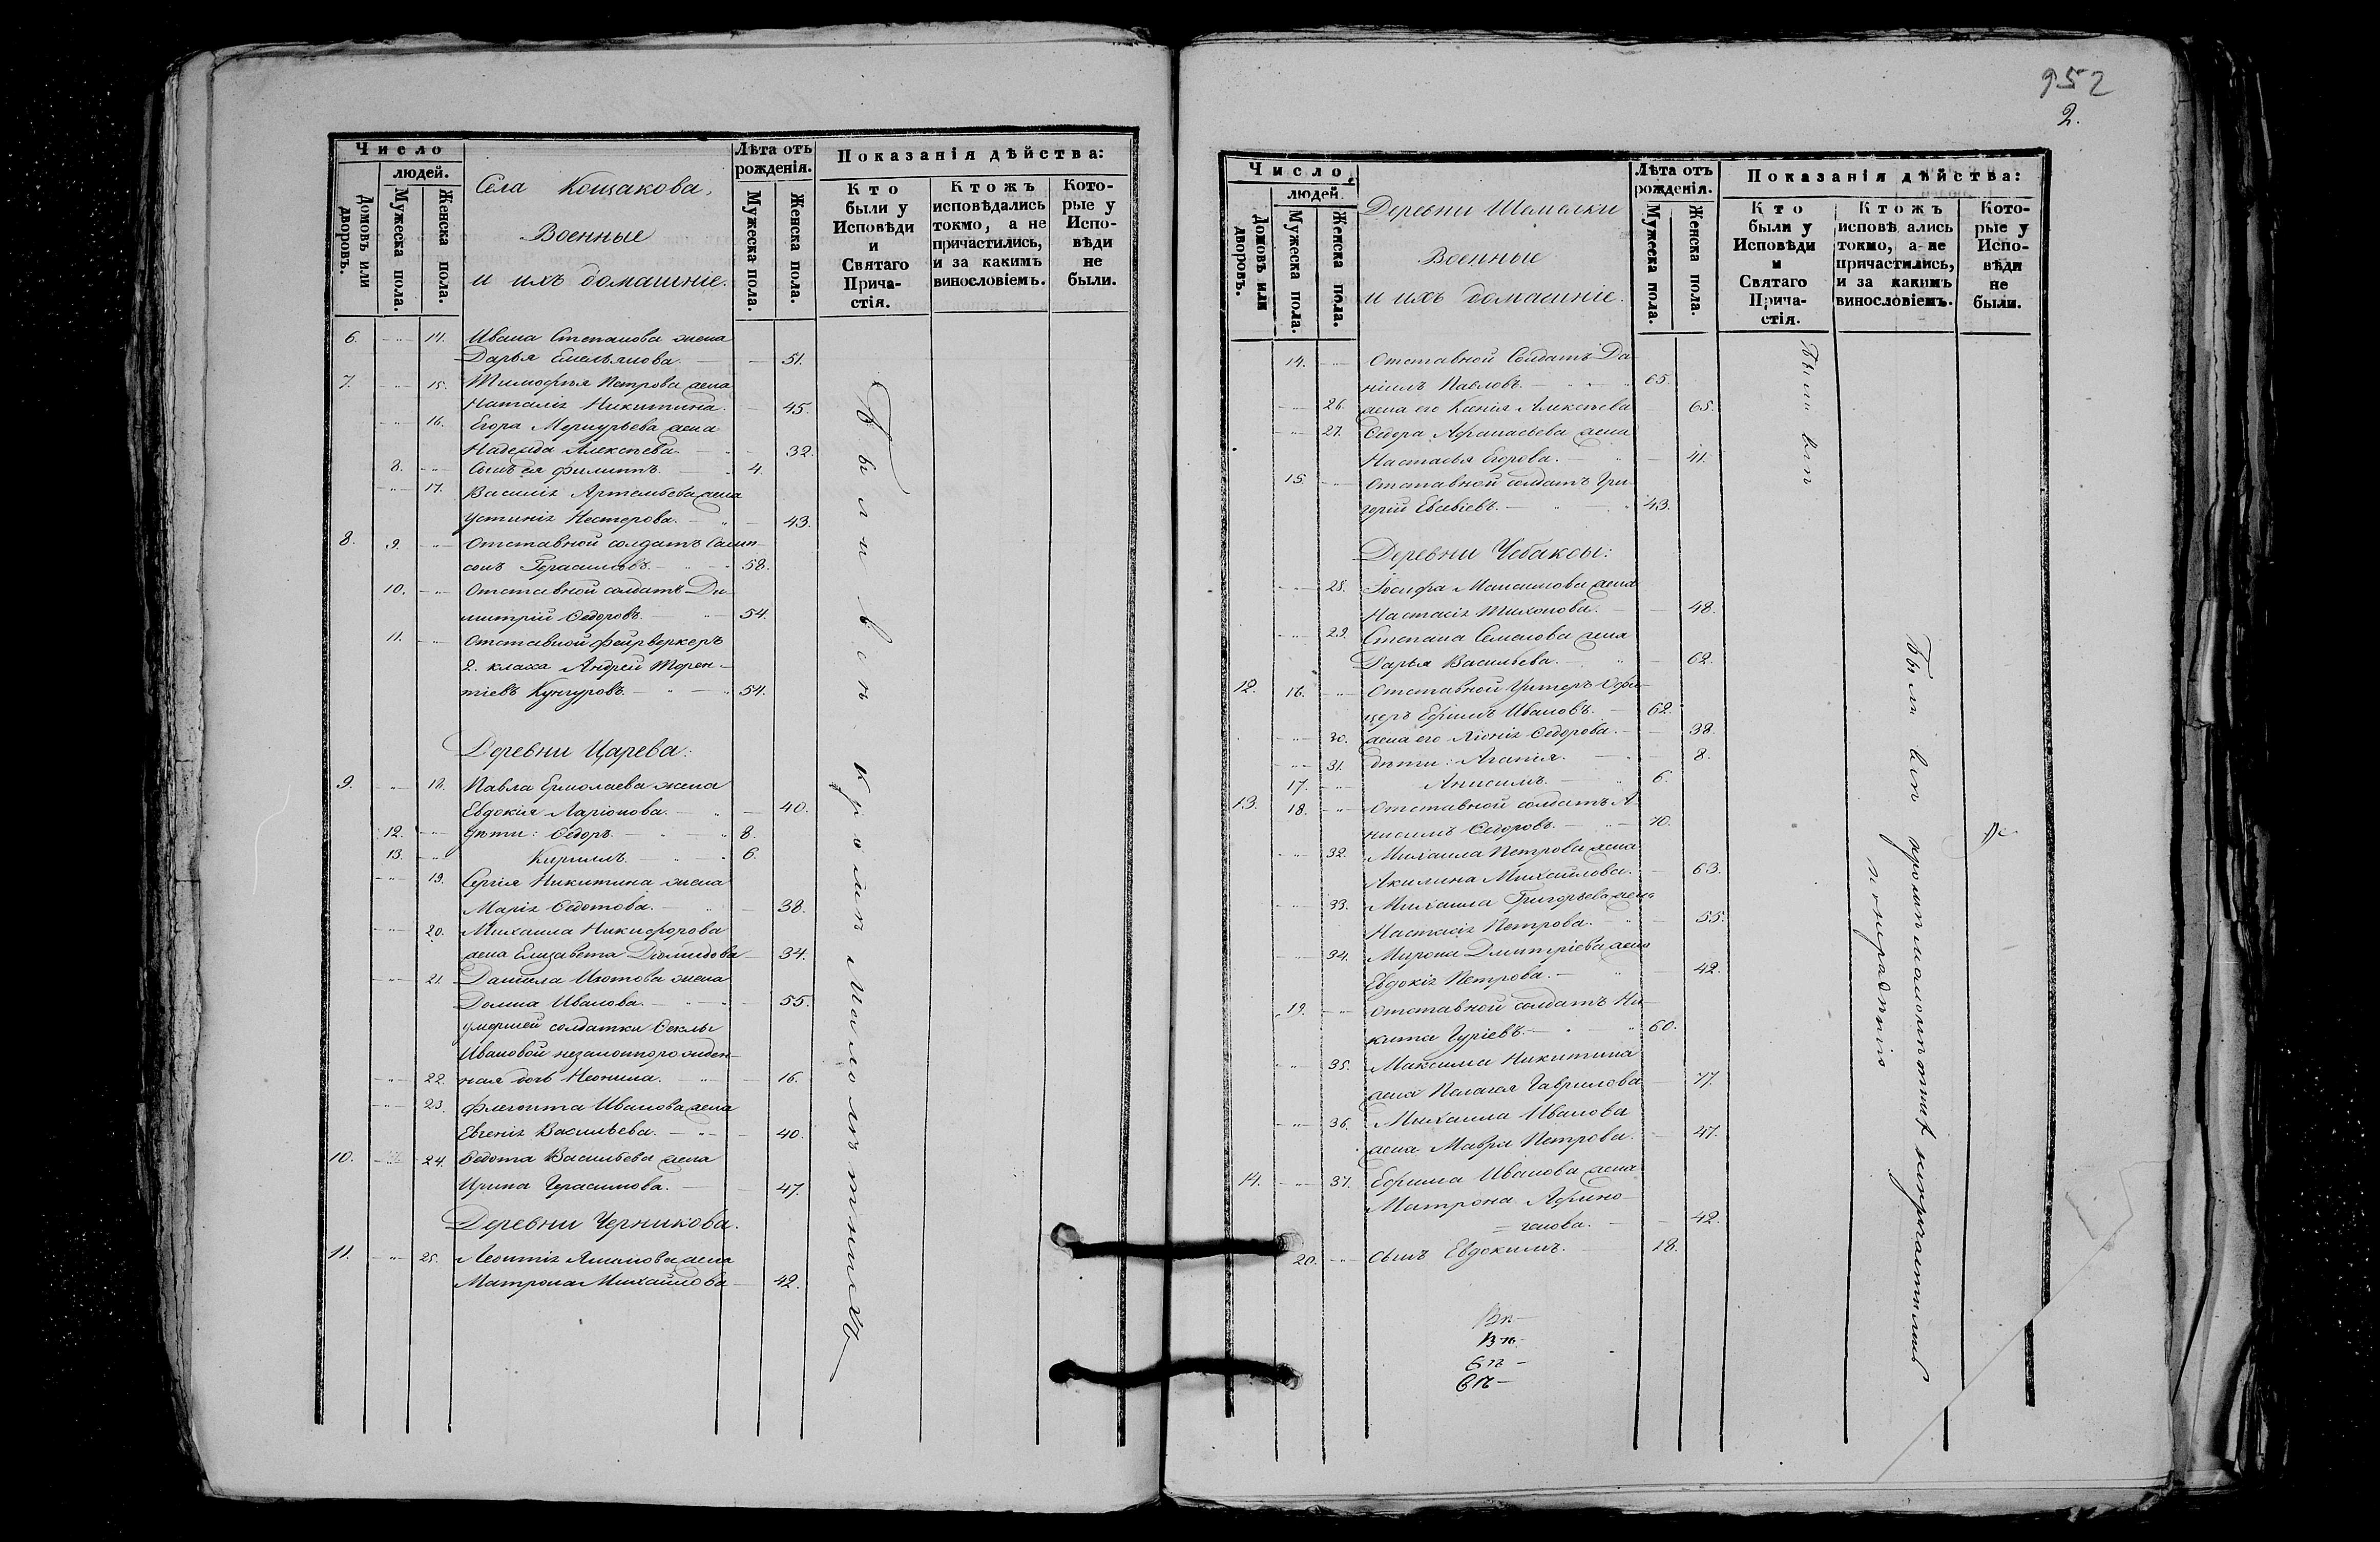 Число
людей.
Домовъ или дворовъ.
Мужеска пола.
Женска пола.
Села Кощакова,
Военные
и ихъ домашніе.
Лѣта отъ рожденія.
Мужеска пола.
Женска пола.
Показанія дѣйства:
Кто были у Исповѣди и Святаго Прича-стія.
Ктожъ исповѣдались токмо, а не причастились, и за какимъ винословіемъ.
Кото-рые у Испо-вѣди не были.
6. 14. Ивана Степанова жена
Дарья Емельянова. 51.
7. 15. Тимофѣя Петрова жена
Наталія Никитина. 45.
16. Егора Меркурьева жена
Надежда Алексѣева. 32.
8. Сынъ ея Филиппъ. 4.
17. Василія Артемьева жена
Устинія Нестерова. 43.
8. 9. Отставной солдатъ Самп-
сонъ Герасимовъ. 58.
10. Отставной солдатъ Ди-
митрій Ѳедоровъ. 54.
11. Отставной фейрверкеръ
2. класса Андрей Терен-
тіевъ Кунгуровъ. 54.
Деревни Царева:
9. 18. Павла Ермолаева жена
Евдокія Ларіонова. 40.
12. Дѣти: Ѳедоръ. 8.
13. Кириллъ. 6.
19. Сергія Никитина жена
Марія Ѳедотова. 38.
20. Михаила Никифорова
жена Елизавета Діомидова 34.
21. Данила Изотова жена
Домна Иванова. 55.
умершей солдатки Ѳеклы
Ивановой незаконнорожден-
22. ная дочь Неонила. 16.
23. Флегонта Иванова жена
Евгенія Васильева. 40.
10. 24. Ѳедота Васильева жена
Ирина Герасимова. 47.
Деревни Черникова.
11. 25. Леонтія жена
Матрона Михайлова 42.
Были всѣ кромѣ малолѣтныхъ
952
2.
Число
людей.
Домовъ или дворовъ.
Мужеска пола.
Женска пола.
Деревни Шемелки
Военные
и ихъ домашніе.
Лѣта отъ рожденія.
Мужеска пола.
Женска пола.
Показанія дѣйства:
Кто были у Исповѣди и Святаго Прича-стія.
Ктожъ исповѣ ались токмо, а не причастились, и за какимъ винословіемъ.
Кото-рые у Испо-вѣди не были.
14. Отставной Солдатъ Да-
ніилъ Павловъ. 65.
26. жена его Ксенія Алексѣева 65.
27. Ѳедора Афанасьева жена
Настасья Егорова. 41.
15. Отставной солдатъ Гри-
горій Евсевіевъ. 43.
Деревни Чебаксы:
28. Іосифа Максимова жена
Настасія Тихонова. 48.
29. Степана Семенова жена
Дарья Васильева. 62.
12. 16. Отставной Унтеръ Офи-
церъ Ефимъ Ивановъ. 62.
30. жена его Ѳедорова. 38.
31. дѣти: Агапія. 8.
17. Анисимъ. 6.
13. 18. Отставной солдатъ А-
нисимъ Ѳедоровъ. 70.
32. Михаила Петрова жена
Акилина Михайлова. 63.
33. Михаила Григорьева жена
Настасія Петрова. 55.
34. Мирона Дмитріева жена
Евдокія Петрова. 42.
19. Отставной солдатъ Ни-
кита Гуріевъ. 60.
35. Максима Никитина
жена Пелагея Гаврилова 77.
36. Михаила Иванова
жена Мавра Петрова. 47.
14. 37. Ефима Иванова жена
Матрона Афино-
генова. 42.
20. Сынъ Евдокимъ. 18.
Были всѣ
Были всѣ кромѣ малолѣтнихъ непричастились
по нерадѣнію